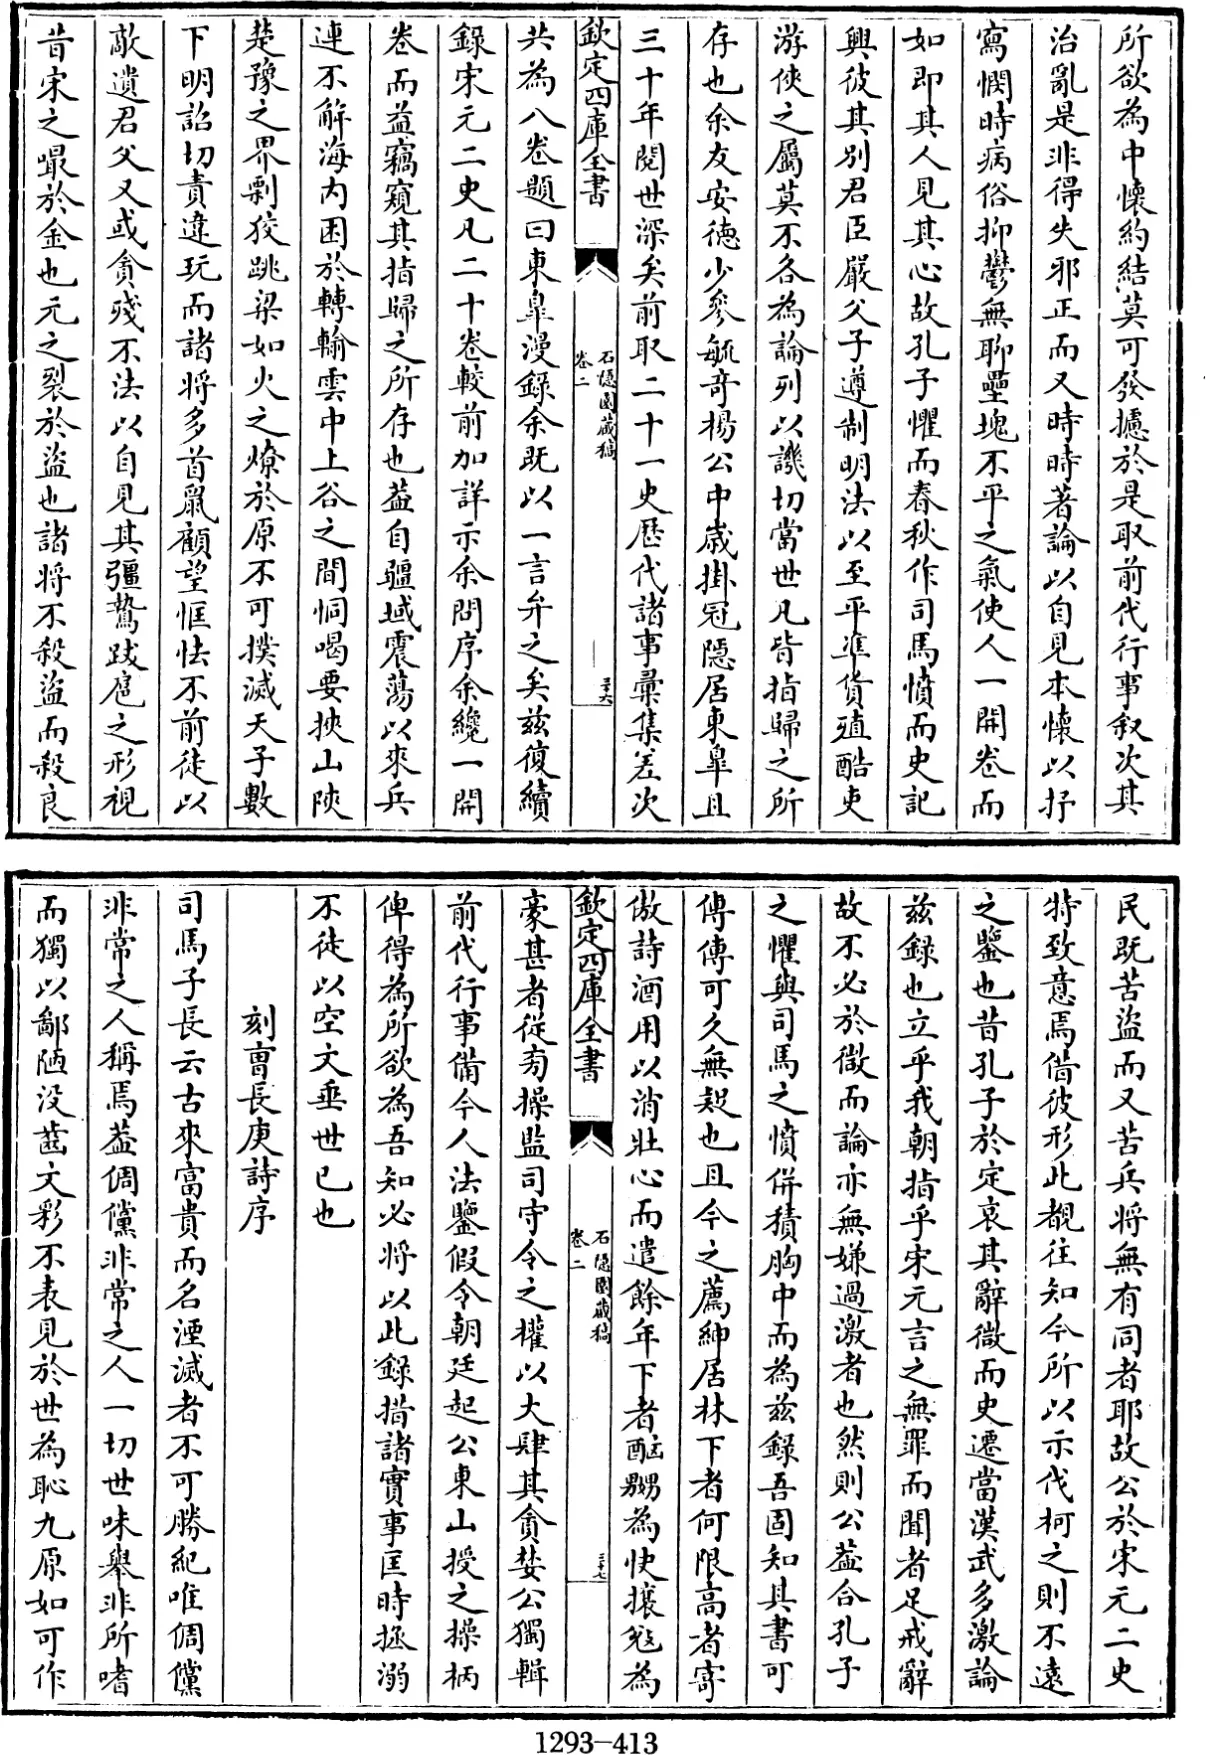 所欲為中懷約結莫可發攄於是取前代行事叙次其
治亂是非得失邪正而又時時著論以自見本懷以抒
寫憫時病俗抑鬱無聊壘塊不平之氣使人一開卷而
如即其人見其心故孔子懼而春秋作司馬憤而史記
興彼其別君臣嚴父子遵制明法以至平準貨殖酷吏
游俠之屬莫不各為論列以譏切當世凡皆指歸之所
存也余友安德少參毓奇楊公中歲掛冠隱居東臯且
三十年閱世深矣前取二十一史歷代諸事彙集差次
欽定四庫全書
石隱園藏稿
卷二
三十六
共為八卷題曰東臯漫録余既以一言弁之矣兹復續
録宋元二史凡二十卷較前加詳示余問序余纔一開
卷而益竊窺其指歸之所存也葢自疆域震蕩以來兵
連不解海内困於轉輸雲中上谷之間恫喝要挾山陝
楚豫之界剽狡跳梁如火之燎於原不可撲滅天子數
下明詔切責違玩而諸將多首鼠顧望恇怯不前徒以
敵遺君父又或貪殘不法以自見其彊鷙跋扈之形視
昔宋之㬠於金也元之裂於盜也諸將不殺盜而殺良
民既苦盜而又苦兵將無有同者耶故公於宋元二史
特致意焉借彼形此覩往知今所以示伐柯之則不遠
之鑒也昔孔子於定哀其辭微而史遷當漢武多激論
兹録也立乎我朝指乎宋元言之無罪而聞者足戒辭
故不必於微而論亦無嫌過激者也然則公葢合孔子
之懼與司馬之憤併積胸中而為兹錄吾固知其書可
傳傳可久無疑也且今之薦紳居林下者何限高者寄
傲詩酒用以消壯心而遣餘年下者酗嬲為快攘攰為
欽定四庫全書
石隱園藏稿
卷二
三十七
豪甚者從旁操監司守令之權以大肆其貪婪公獨輯
前代行事備今人法鑒假令朝廷起公東山授之操柄
俾得為所欲為吾知必將以此録措諸實事匡時拯溺
不徒以空文垂世已也
刻曹長庚詩序
司馬子長云古來富貴而名湮滅者不可勝紀唯倜儻
非常之人稱焉葢倜儻非常之人一切世味舉非所嗜
而獨以鄙陋没齒文彩不表見於世為恥九原如可作
1293-413